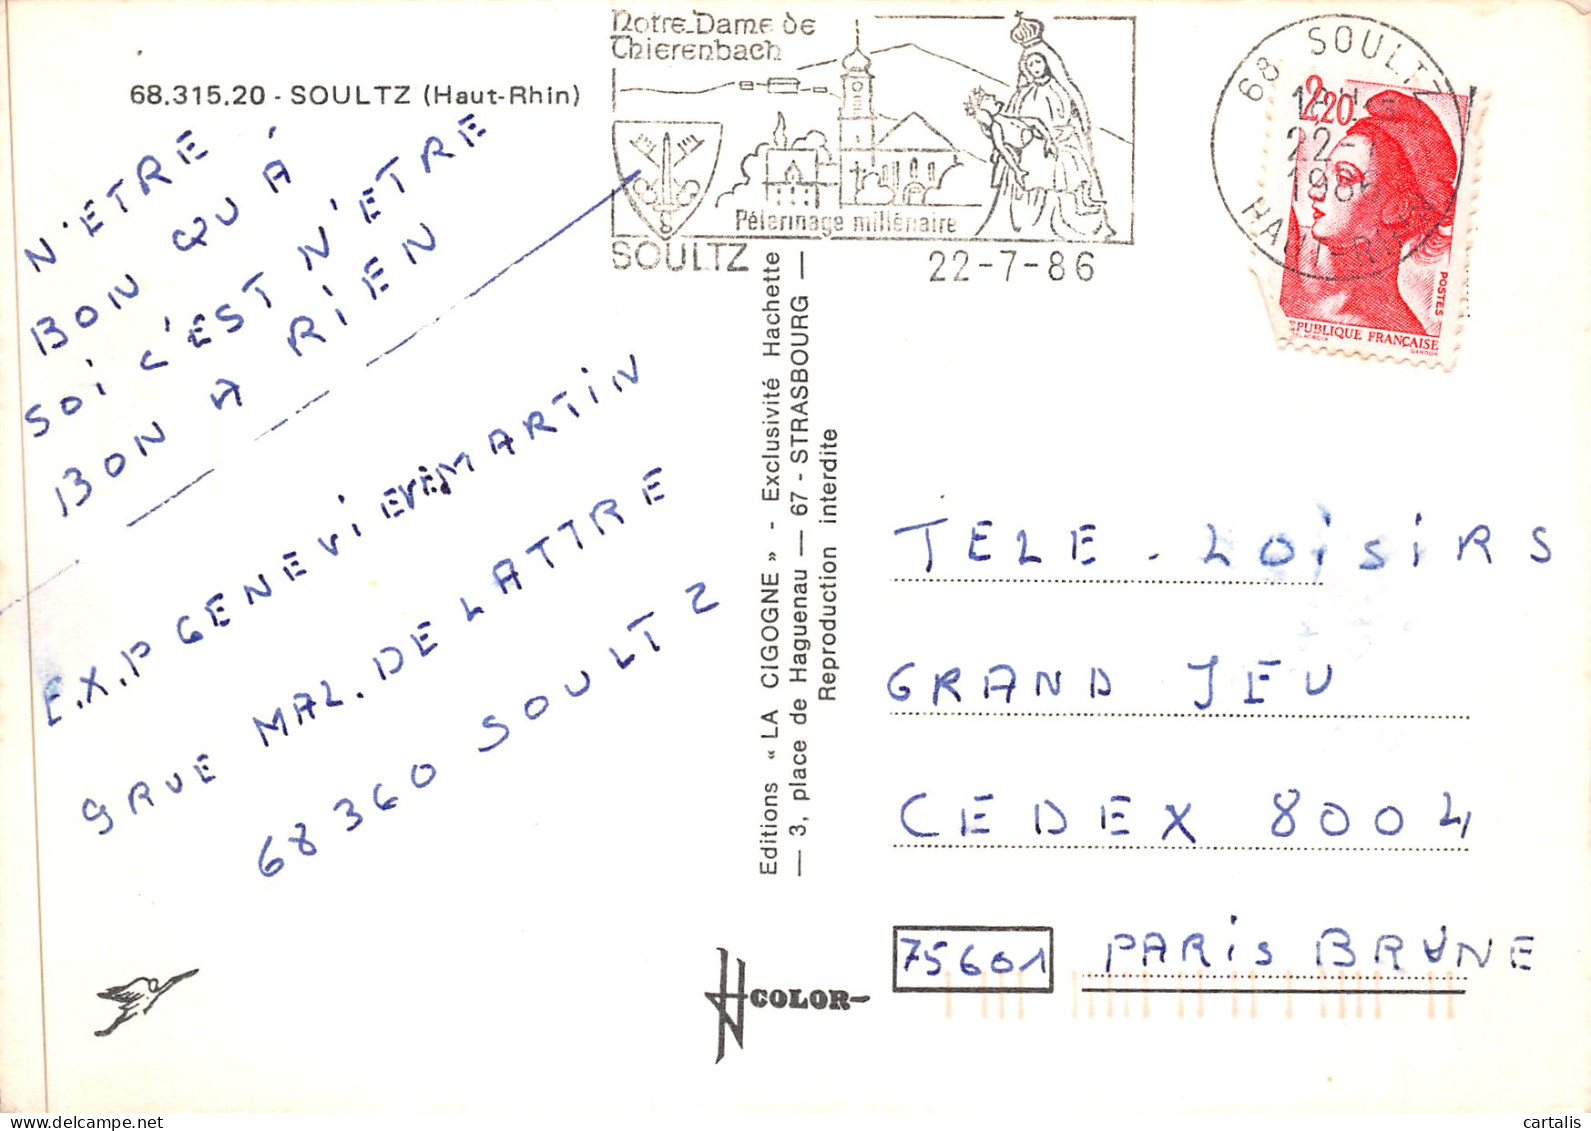 68.315.20 - SOULTZ (Haut-Rhin)
N'ETRE
BON QU'À
SOI C'EST N'ETRE
BON A RIEN
EXP GENEVIEVE MARTIN
9 RUE MAL. DE LATTRE
68360 SOULTZ
Notre-Dame de
Thierenbach
Pélerinage millénaire
SOULTZ
22-7-86
68 SOULTZ
HAUT-RHIN
18H
22-7
1986
2,20
POSTES
RÉPUBLIQUE FRANÇAISE
DELACROIX
GANDON
Editions « LA CIGOGNE » - Exclusivité Hachette
— 3, place de Haguenau — 67 - STRASBOURG —
Reproduction interdite
TELE - LOISIRS
GRAND JEU
CEDEX 8004
75601 PARIS BRUNE
COLOR
cartalis - www.delcampe.net